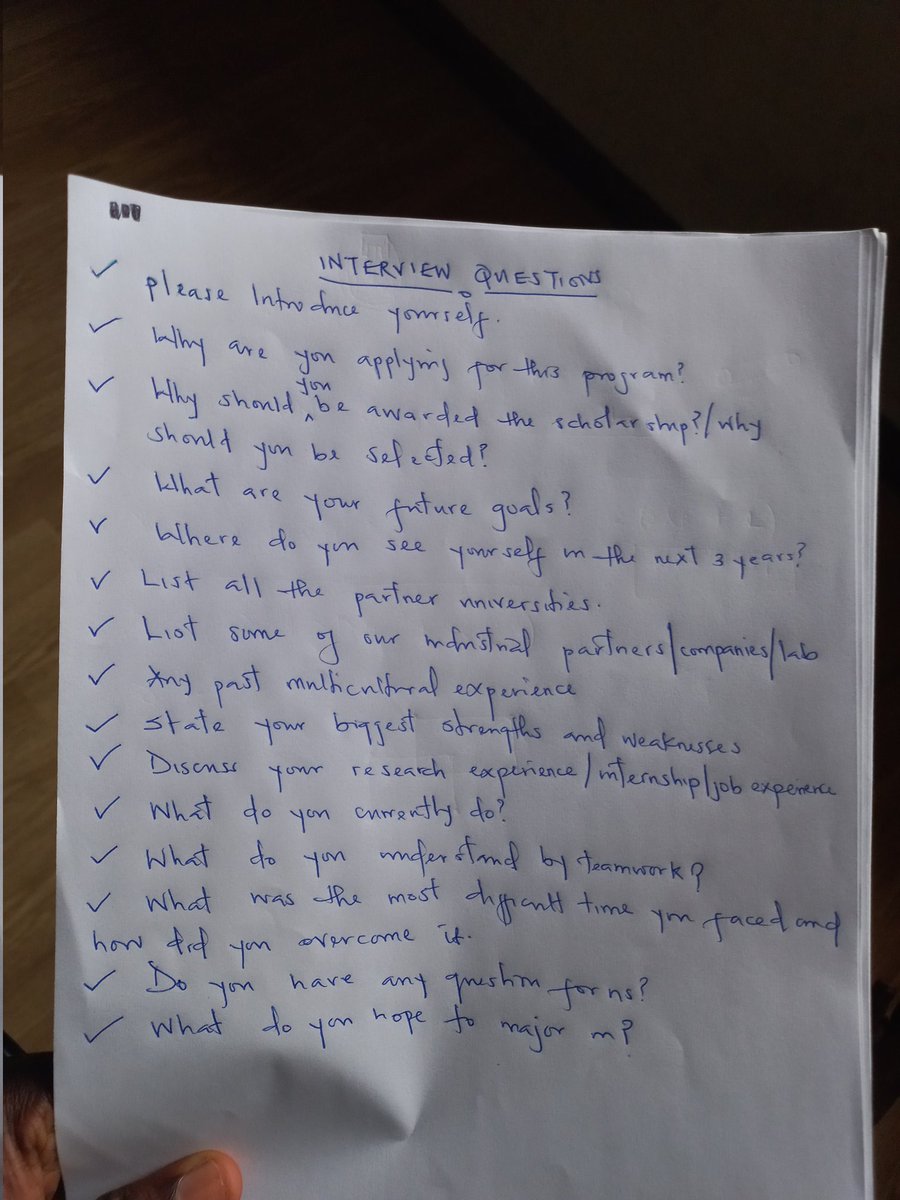 INTERVIEW QUESTIONS
✓ please Introduce yourself.
✓ Why are you applying for this program?
✓ Why should you be awarded the scholarship?/Why
should you be selected?
✓ What are your future goals?
✓ Where do you see yourself in the next 3 years?
✓ List all the partner universities.
✓ List some of our industrial partners/companies/lab
✓ Any past multicultural experience
✓ State your biggest strengths and weaknesses
✓ Discuss your research experience/internship/job experience
✓ What do you currently do?
✓ What do you understand by teamwork?
✓ What was the most difficult time you faced and
how did you overcome it.
✓ Do you have any question for us?
✓ What do you hope to major in?